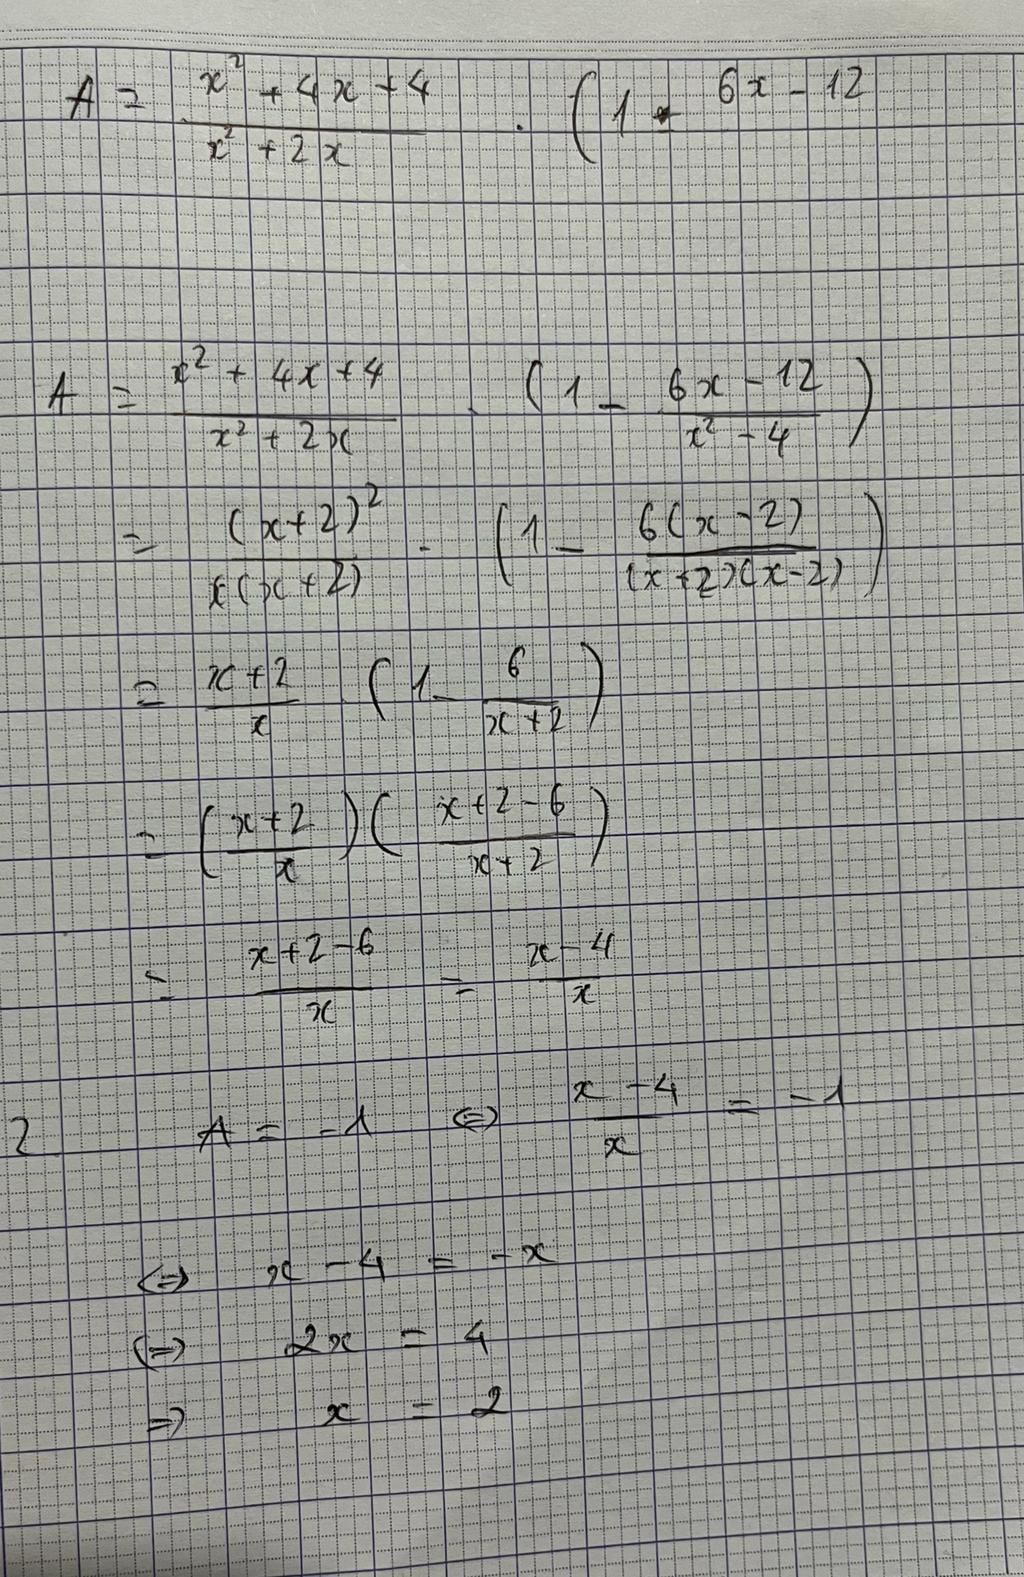 A = \frac{x^2 + 4x + 4}{x^2 + 2x} . (1 - 6x - 12
A = \frac{x^2 + 4x + 4}{x^2 + 2x} . (1 - \frac{6x - 12}{x^2 - 4})
= \frac{(x+2)^2}{x(x+2)} . (1 - \frac{6(x-2)}{(x+2)(x-2)})
= \frac{x+2}{x} (1 - \frac{6}{x+2})
= (\frac{x+2}{x})(\frac{x+2-6}{x+2})
= \frac{x+2-6}{x} = \frac{x-4}{x}
2 A = -1 ⇔ \frac{x-4}{x} = -1
⇔ x - 4 = -x
⇔ 2x = 4
⇒ x = 2